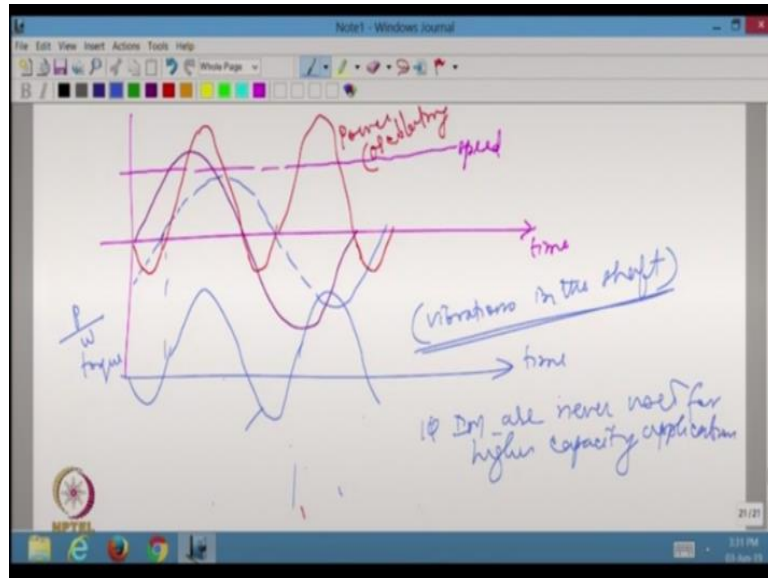 Note1 - Windows Journal
File Edit View Insert Actions Tools Help
Whole Page
B I
Power
speed
time
P
ω
torque
(vibrations in the shaft)
time
1φ IM are never used for
higher capacity application
NPTEL
21/21
3:31 PM
03-Jun-19